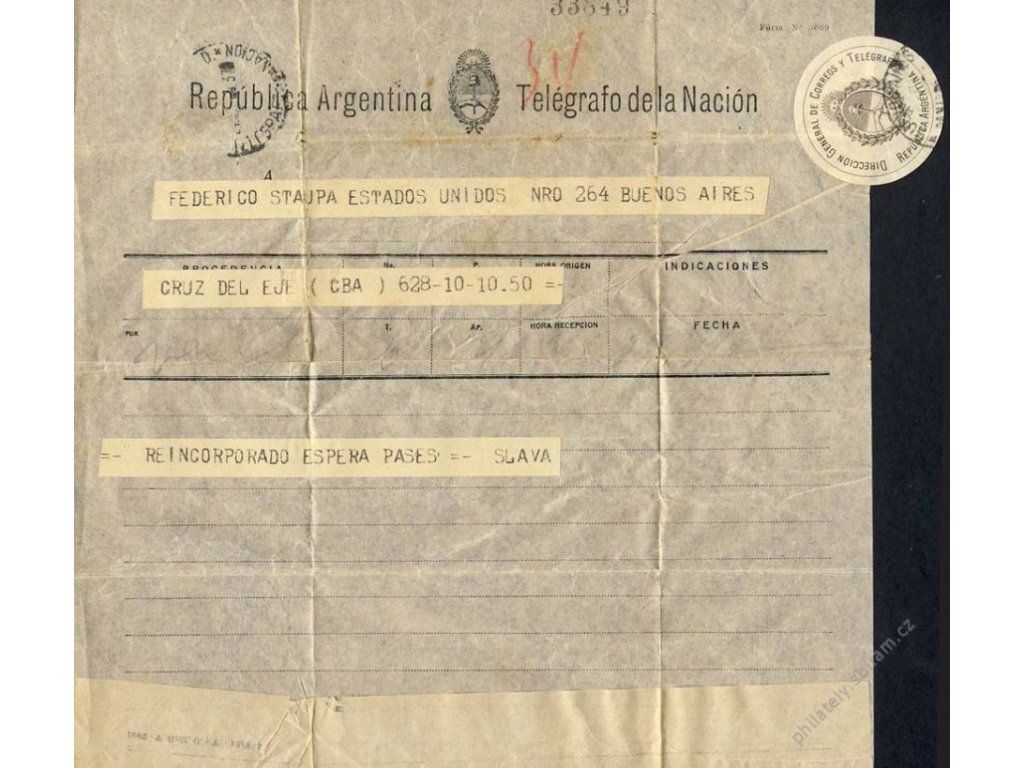 33849
Fórm. Nº
31
República Argentina Telégrafo de la Nación
DIRECCIÓN GENERAL DE CORREOS Y TELÉGRAFOS
REPÚBLICA ARGENTINA
A
FEDERICO STAUPA ESTADOS UNIDOS NRO 264 BUENOS AIRES
PROCEDENCIA No. P. HORA ORIGEN INDICACIONES
CRUZ DEL EJE ( CBA ) 628-10-10.50 =-
POR T. AP. HORA RECEPCIÓN FECHA
=- REINCORPORADO ESPERA PASES =- SLAVA
philately.sbiram.cz